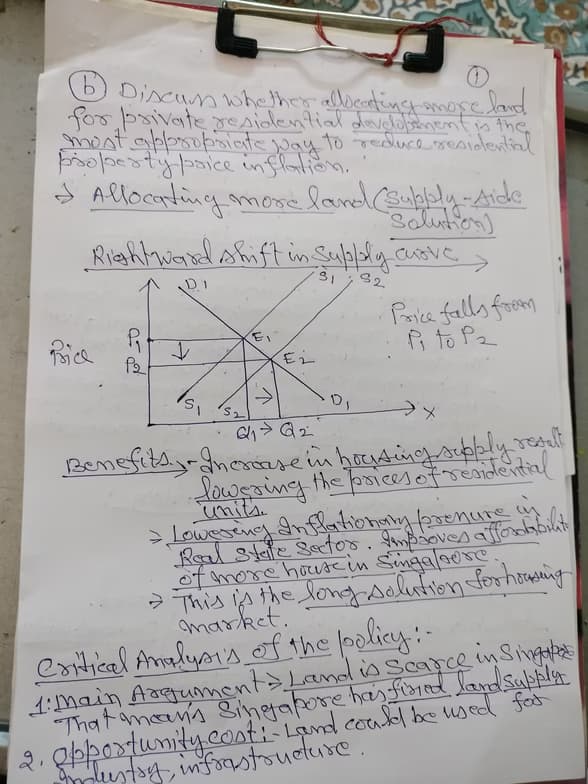 1
(b) Discuss whether allocating more land
for private residential development is the
most appropriate way to reduce residential
property price inflation.
→ Allocating more land (Supply-side
Solution)
Rightward shift in supply curve →
D1 S1 S2
Price falls from
P1 to P2
P1 E1
Price ↓
P2 E2
S1 S2 → D1 X
Q1 → Q2
Benefits → Increase in housing supply result
lowering the prices of residential
units.
→ Lowering Inflationary pressure in
Real State Sector. Improves affordability
of more house in Singapore
→ This is the long solution for housing
market.
Critical Analysis of the policy:-
1: Main Argument → Land is scarce in Singapore
That means Singapore has fixed land supply
2. Opportunity cost:- Land could be used for
industry, infrastructure.